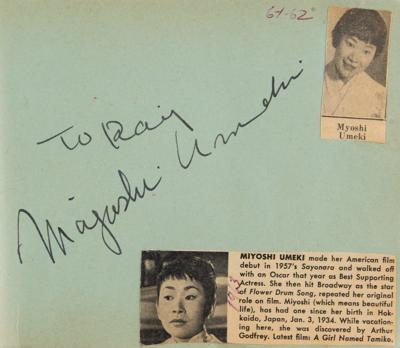 61-62
Myoshi
Umeki
To Ray
Miyoshi Umeki
MIYOSHI UMEKI made her American film
debut in 1957's Sayonara and walked off
with an Oscar that year as Best Supporting
Actress. She then hit Broadway as the star
of Flower Drum Song, repeated her original
role on film. Miyoshi (which means beautiful
life), has had one since her birth in Hok-
kaido, Japan, Jan. 3, 1934. While vacation-
ing here, she was discovered by Arthur
Godfrey. Latest film: A Girl Named Tamiko.